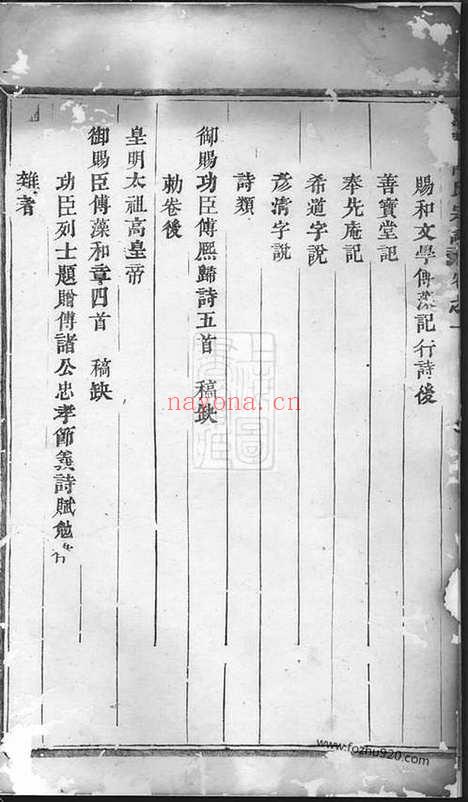 賜和文學傳藻記行詩後
善寶堂記
奉先庵記
希道字說
彥清字說
詩類
御賜功臣傳熙歸詩五首 稿缺
勅卷後
皇明太祖高皇帝
御賜臣傳藻和章四首 稿缺
功臣列士題贈傳諸公忠孝節義詩賦勉
雜著
nayona.cn
www.fozhu920.com